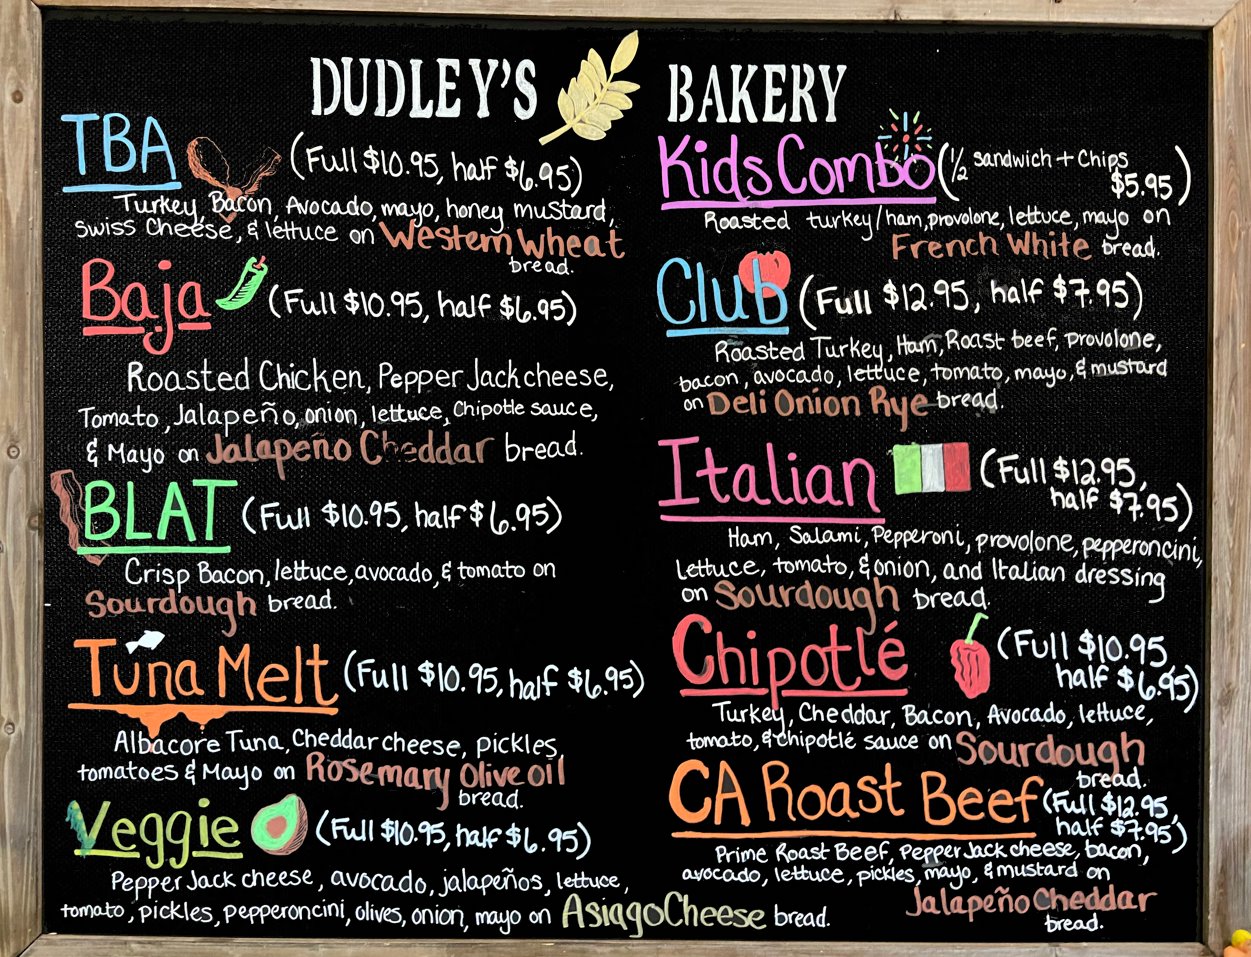 DUDLEY'S BAKERY
TBA (Full $10.95, half $6.95)
Turkey, Bacon, Avocado, mayo, honey mustard,
Swiss Cheese, & lettuce on Western Wheat
bread.
Baja (Full $10.95, half $6.95)
Roasted Chicken, Pepper Jack cheese,
Tomato, Jalapeño, onion, lettuce, Chipotle sauce,
& Mayo on Jalapeño Cheddar bread.
BLAT (Full $10.95, half $6.95)
Crisp Bacon, lettuce, avocado, & tomato on
Sourdough bread.
Tuna Melt (Full $10.95, half $6.95)
Albacore Tuna, Cheddar cheese, pickles,
tomatoes & Mayo on Rosemary Olive oil
bread.
Veggie (Full $10.95, half $6.95)
Pepper Jack cheese, avocado, jalapeños, lettuce,
tomato, pickles, pepperoncini, olives, onion, mayo on Asiago Cheese bread.
Kids Combo (1/2 sandwich + Chips
$5.95)
Roasted turkey/ham, provolone, lettuce, mayo on
French White bread.
Club (Full $12.95, half $7.95)
Roasted Turkey, Ham, Roast beef, provolone,
bacon, avocado, lettuce, tomato, mayo, & mustard
on Deli Onion Rye bread.
Italian (Full $12.95,
half $7.95)
Ham, Salami, Pepperoni, provolone, pepperoncini,
lettuce, tomato, & onion, and Italian dressing
on Sourdough bread.
Chipotlé (Full $10.95,
half $6.95)
Turkey, Cheddar, Bacon, Avocado, lettuce,
tomato, & chipotlé sauce on Sourdough
bread.
CA Roast Beef (Full $12.95,
half $7.95)
Prime Roast Beef, Pepper Jack cheese, bacon,
avocado, lettuce, pickles, mayo, & mustard on
Jalapeño Cheddar
bread.